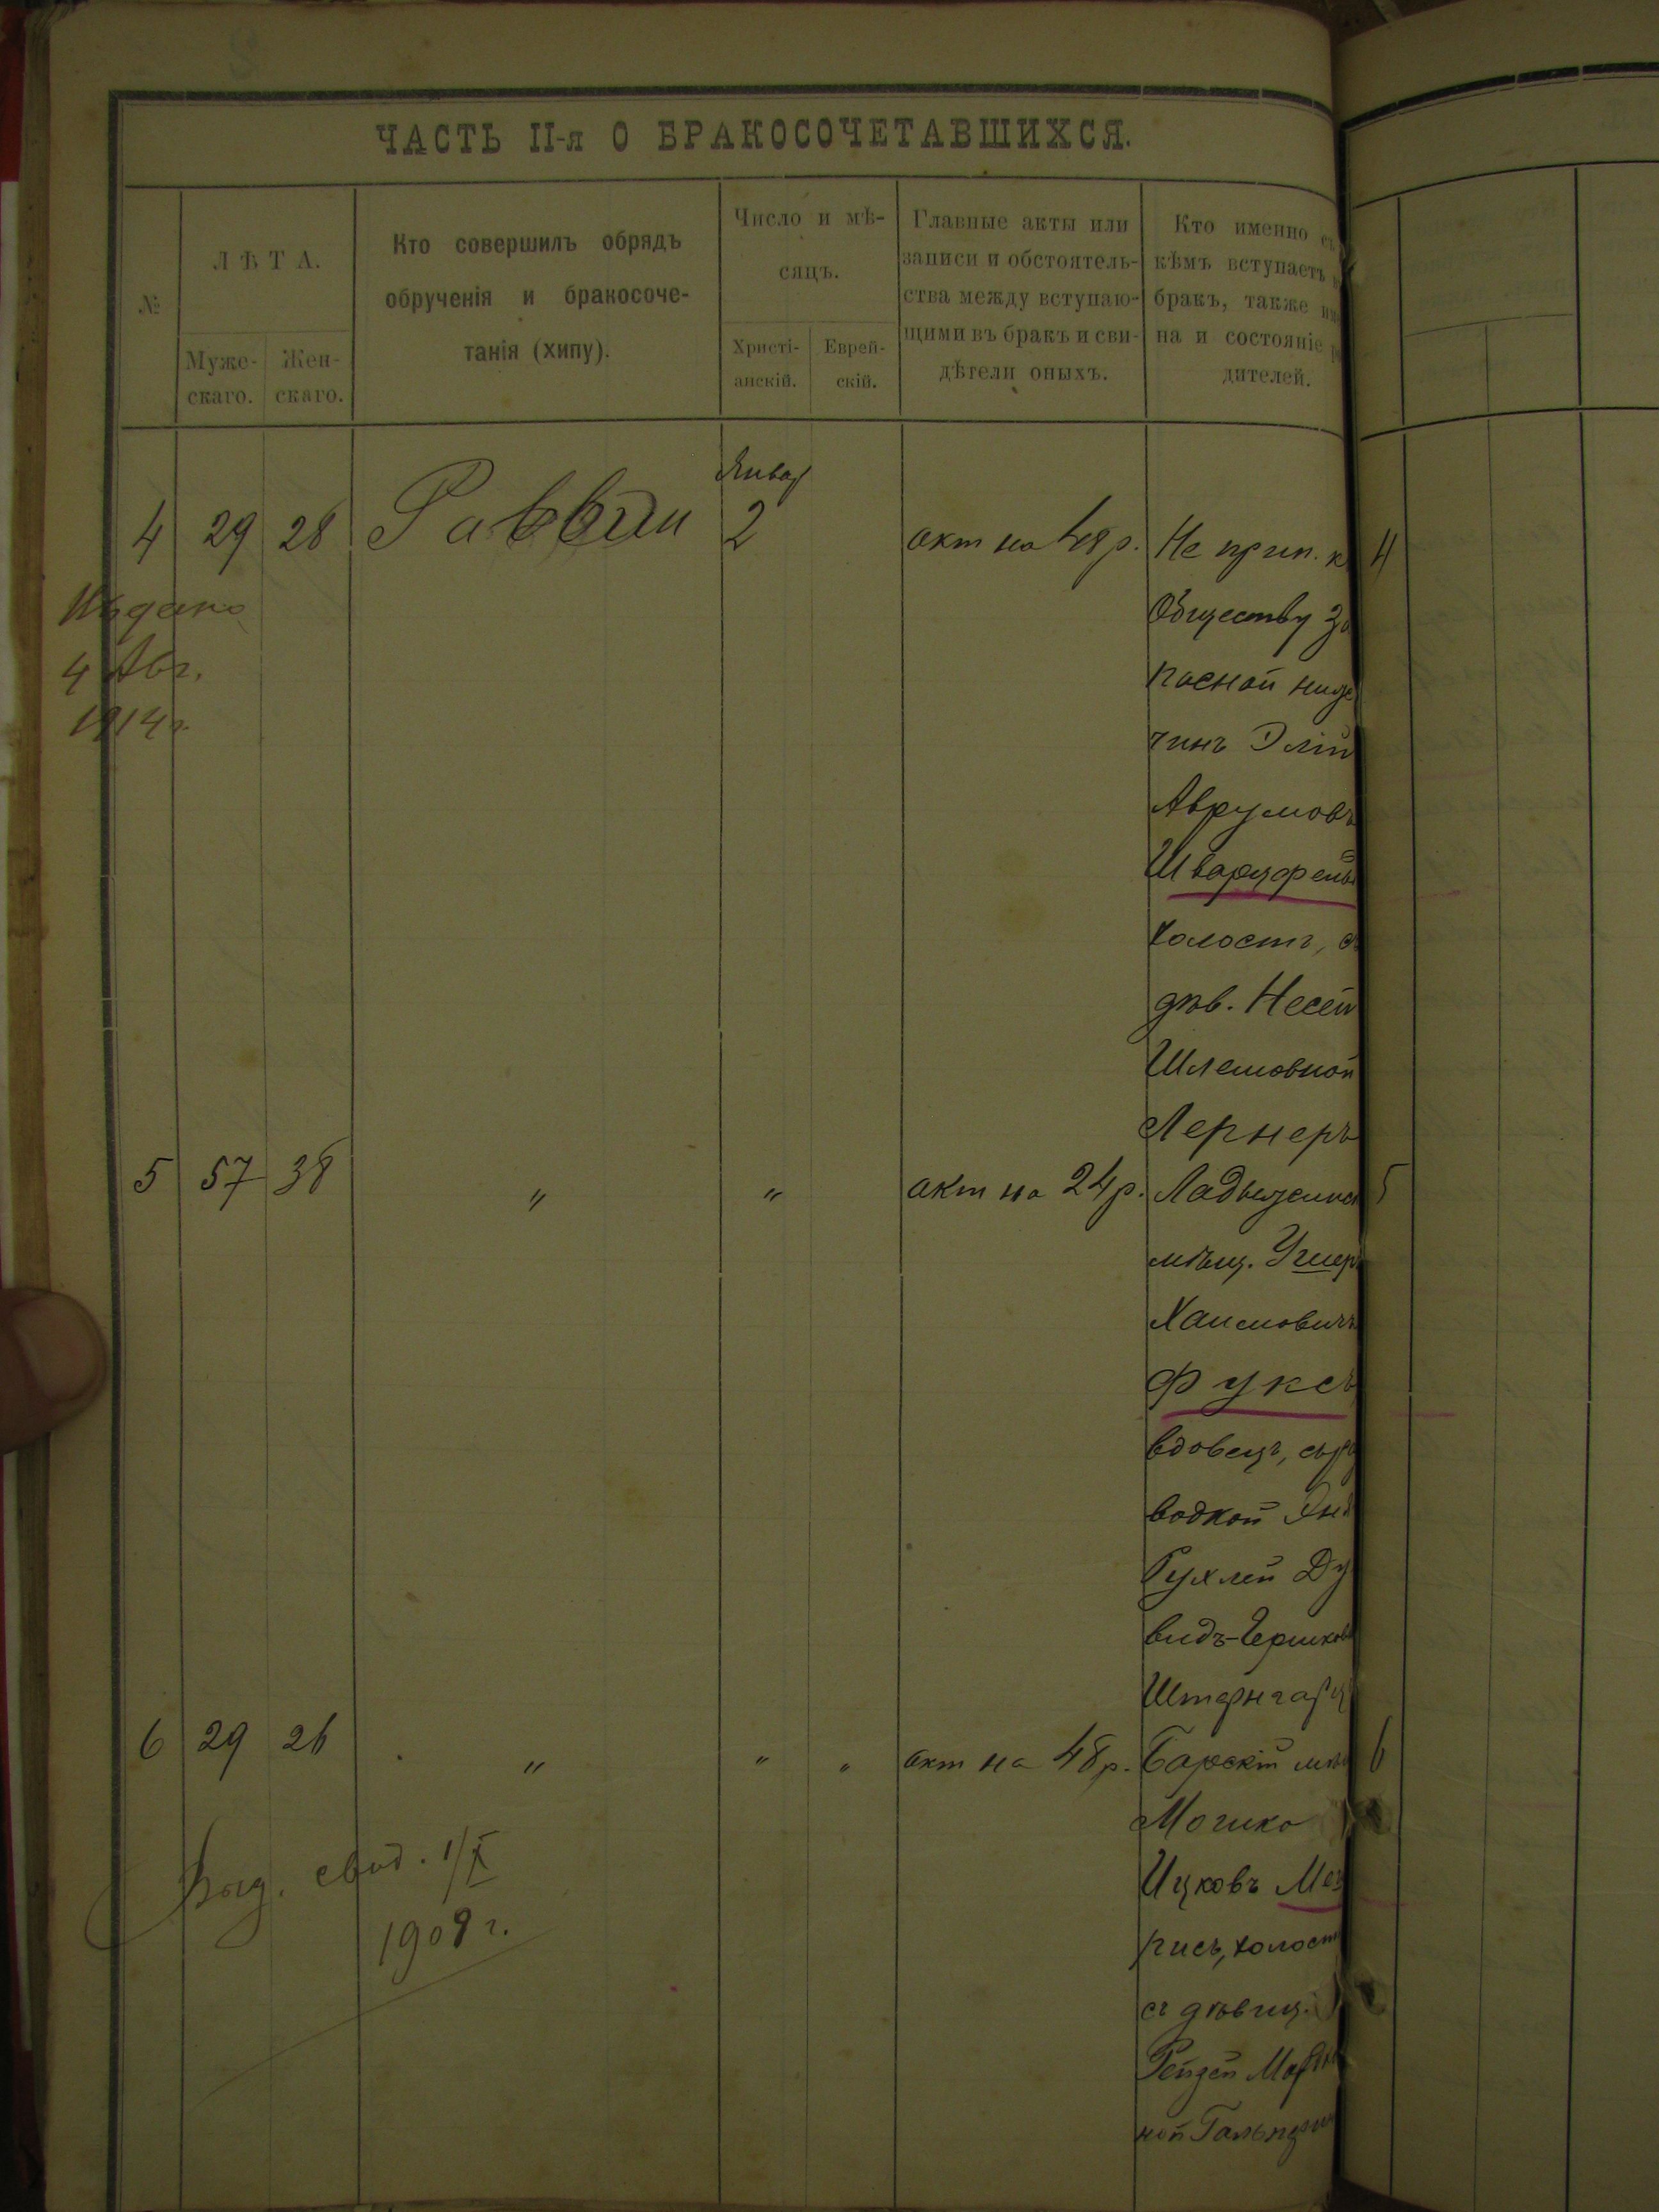 ЧАСТЬ II-я О БРАКОСОЧЕТАВШИХСЯ.
№
ЛѢТА.
Муже-
скаго.
Жен-
скаго.
Кто совершилъ обрядъ
обрученія и бракосоче-
танія (хипу).
Число и мѣ-
сяцъ.
Христі-
анскій.
Еврей-
скій.
Главные акты или
записи и обстоятель-
ства между вступаю-
щими въ бракъ и сви-
дѣтели оныхъ.
Кто именно съ
кѣмъ вступаетъ
бракъ, также
на и состояніе
дителей.
Январ
4 29 28 Раввин 2 акт на 48 р. Не прип. к 4
Обществу За
пасной
чинъ
Аврумовъ
Шварцфель
холостъ, съ
дѣв. Несей
Шлемовной
Лернеръ
4 Авг.
1914 г.
5 57 38 " " акт на 24 р. Ладыжинск 5
мѣщ. Ушеръ
Хаимовичъ
Фуксъ
вдовецъ, съ раз
водкой
Рухлей Ду
видъ-Гершков
Штернгарц
6 29 26 " " " акт на 48 р. Барскій мѣщ 6
Мошко
Ицковъ Меж
рисъ, холост
съ дѣвиц.
Рейзей
ной
Выд. свид. 1/X
1909 г.